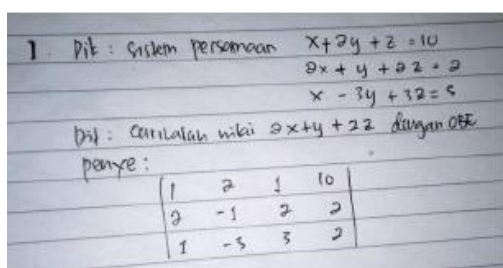 1. Dik : sistem persamaan x+2y+z=10
2x+y+2z=2
x-3y+3z=5
Dit : carilalah nilai 2x+y+2z dengan OBE
penye :
1 2 1 10
2 -1 2 2
1 -3 3 2